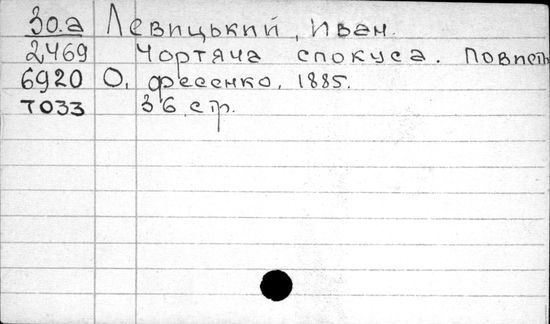 30.а Левицький, Иван.
2469 Чортяча спокуса. Повпсть
6920 О, фесенко, 1885.
7033 36 стр.